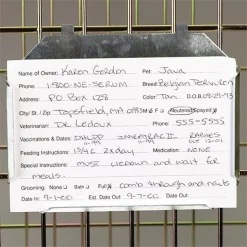 Name of Owner: Karen Gordon Pet: Java
Phone: 1-800-NE-SERUM Breed: Belgian Tervuren
Address: PO Box 128 Color: Tan D.O.B. 08-29-93
City / St. / Zip Topsfield, MA 01983 M F Neutered/Spayed
Veterinarian: Dr. Ledoux Phone: 555-5555
Vaccinations & Dates: DHLPP RABIES
Feeding Instructions: 1 3/4 C 2x day Medication: NONE
Special Instructions: must liedown and wait for
meals.
Grooming: None Bath Full comb through and nails
Date In: 9-1-00 Est. Date Out: 9-7-00 Date Out: